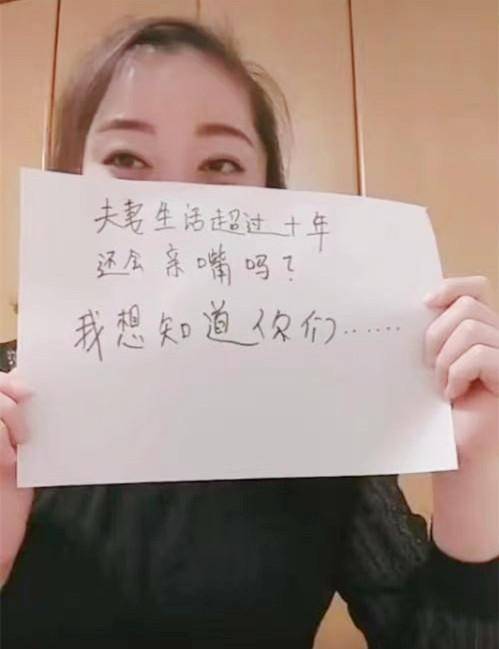 夫妻生活超过十年
还会亲嘴吗?
我想知道你们……